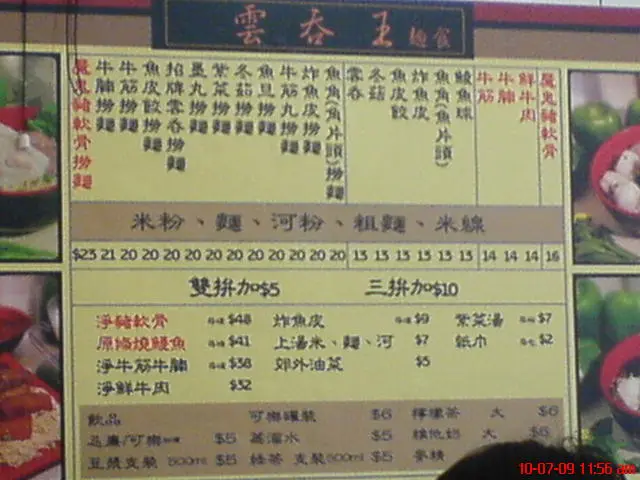 雲吞王麵食
魔鬼豬軟骨撈麵
牛腩撈麵
牛筋撈麵
魚皮餃撈麵
招牌雲吞撈麵
墨丸撈麵
紫菜撈麵
冬菇撈麵
魚旦撈麵
牛筋丸撈麵
炸魚皮撈麵
魚角(魚片頭)撈麵
雲吞
冬菇
魚皮餃
炸魚皮
魚角(魚片頭)
鯪魚球
牛筋
牛腩
鮮牛肉
魔鬼豬軟骨
米粉、麵、河粉、粗麵、米線
$23 21 20 20 20 20 20 20 20 20 20 20 20 13 13 13 13 13 13 14 14 14 16
雙拼加$5 三拼加$10
淨豬軟骨 $48 炸魚皮 $9 紫菜湯 $7
原條燒鰻魚 $41 上湯米、麵、河 $7 紙巾 $2
淨牛筋牛腩 $38 郊外油菜 $5
淨鮮牛肉 $32
飲品 可樂罐裝 $6 檸檬茶 大 $6
$5 蒸溜水 $5 維他奶 大 $5
豆漿支裝 500ml $5 綠茶 支裝500ml $5 麥精
10-07-09 11:56 am